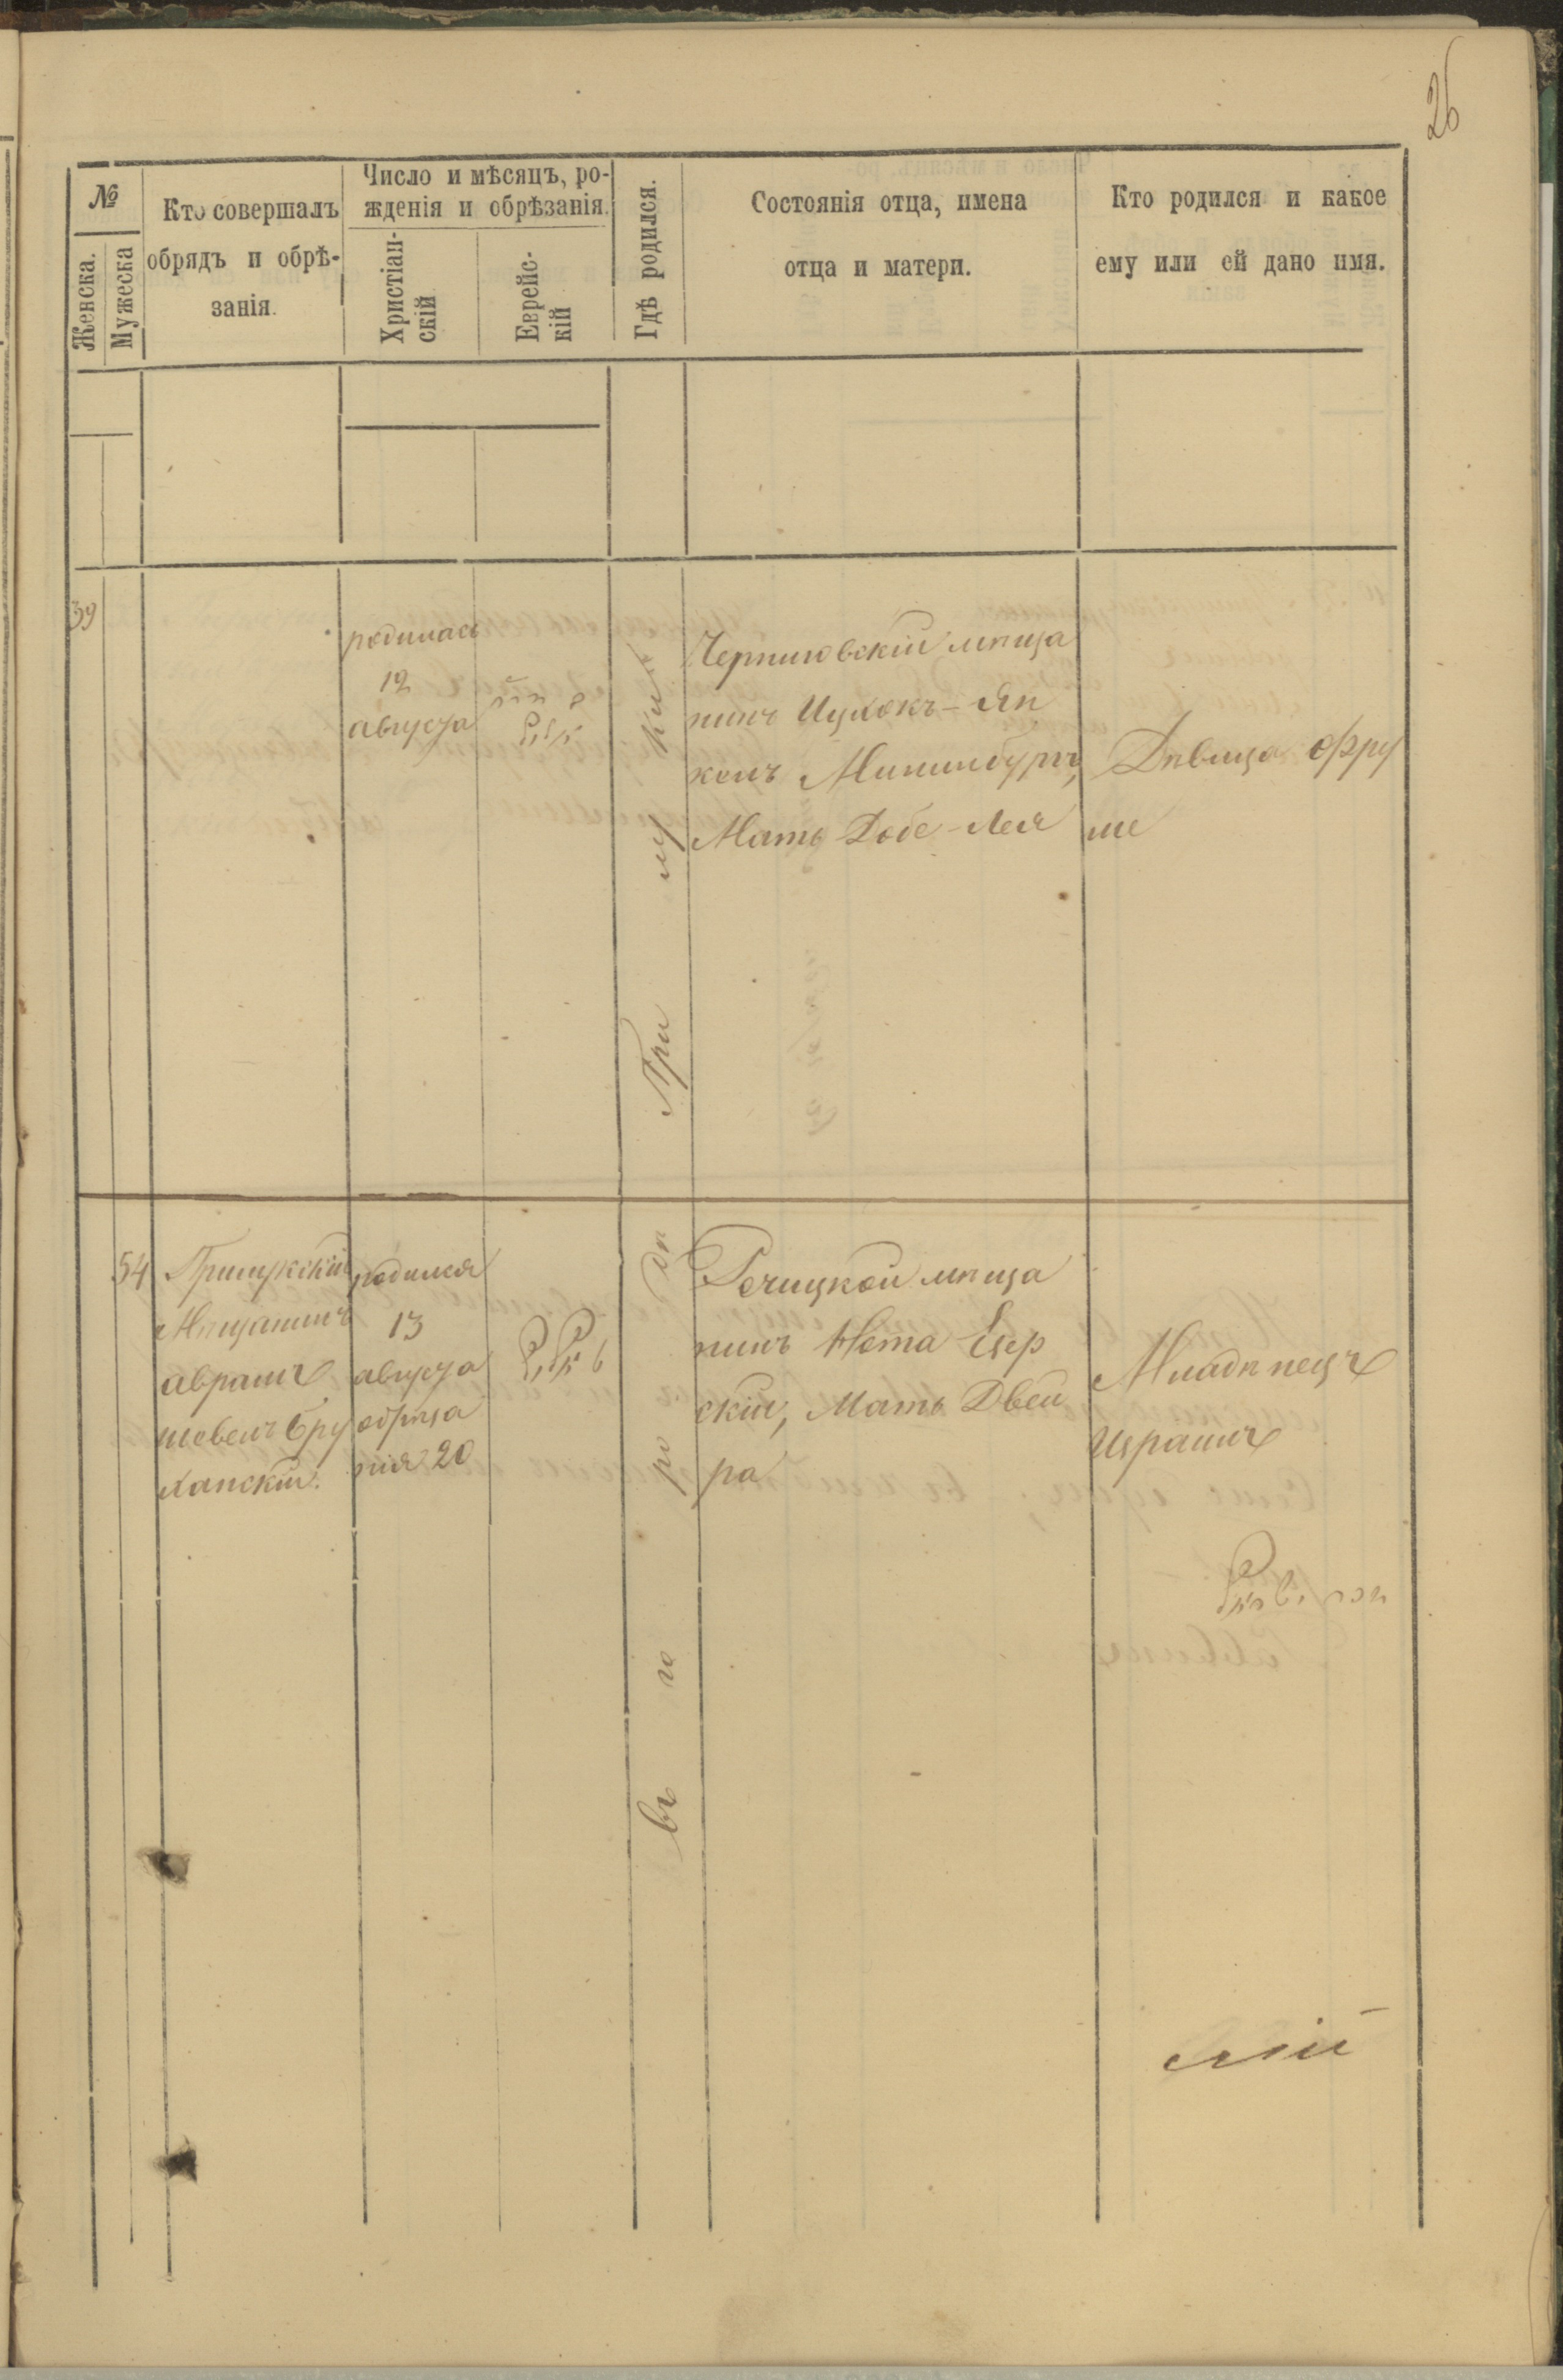 26
№
Женска.
Мужеска
Кто совершалъ
обрядъ и обрѣ-
занія.
Число и мѣсяцъ, ро-
жденія и обрѣзанія.
Христіан-
скій
Еврейс-
кій
Гдѣ родился.
Состоянія отца, имена
отца и матери.
Кто родился и какое
ему или ей дано имя.
39
родилась
12
августа
Черниговскій мѣща
нинъ Ицхокъ-Ян
кель
Мать Добе-Лея
Дѣвица Фру
ме
При
54
Прилукскій
Мѣщанинъ
Аврамъ
Шевель Бру
ханскій.
родился
13
августа
обрѣза
нія 20
въ го ро дѣ
Речицкой мѣща
нинъ Нота Езер
скій, Мать Двей
ра
Младѣнецъ
Израиль